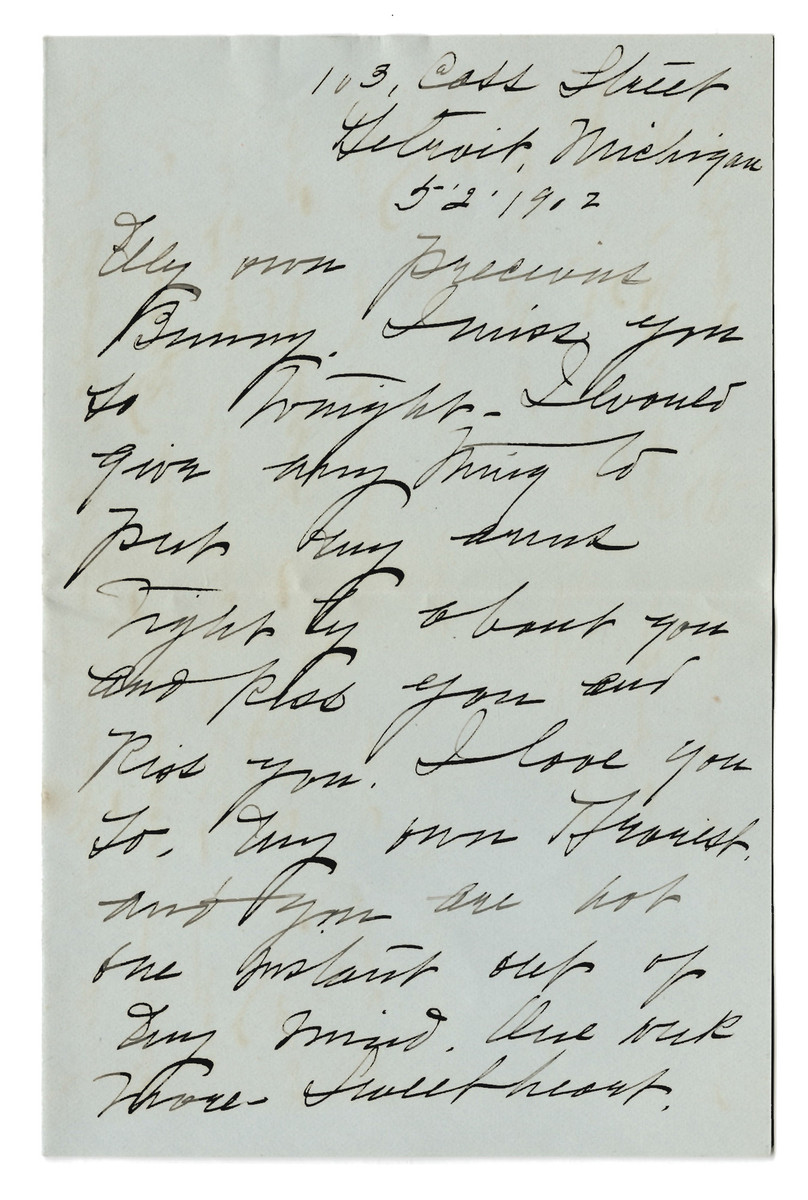 103, Cass Street
Detroit, Michigan
5'2'1902
My own precious
Bunny. I miss you
so tonight - I would
give any thing to
put my arms
tightly about you
and kiss you and
kiss you. I love you
so, my own Dearest.
and you are not
one instant out of
my mind. One week
more - Sweetheart.